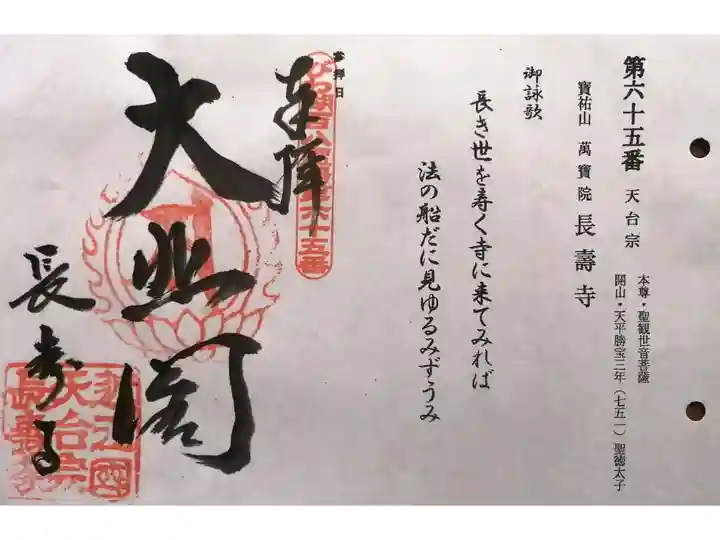 第六十五番 天台宗
寶祐山 萬寶院 長壽寺
本尊・聖観世音菩薩
開山・天平勝宝三年(七五一)聖徳太子
御詠歌
長き世を寿く寺に来てみれば
法の船だに見ゆるみずうみ
参拝日
奉拝
びわ湖百八霊場第六十五番
大悲閣
長寿寺
近江國
天台宗
長壽寺